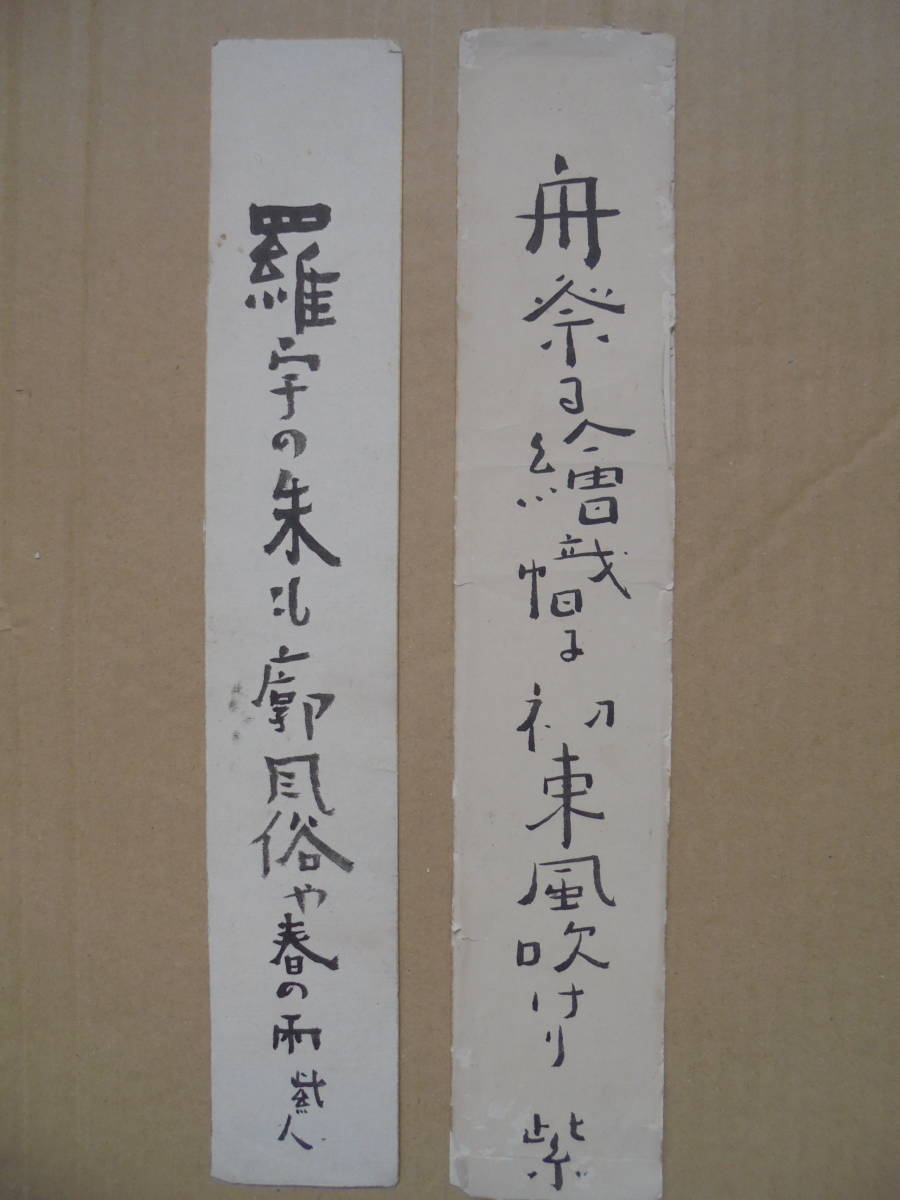 舟祭る繪幟に初東風吹けり 紫
羅宇の朱も廓風俗や春の雨 紫人